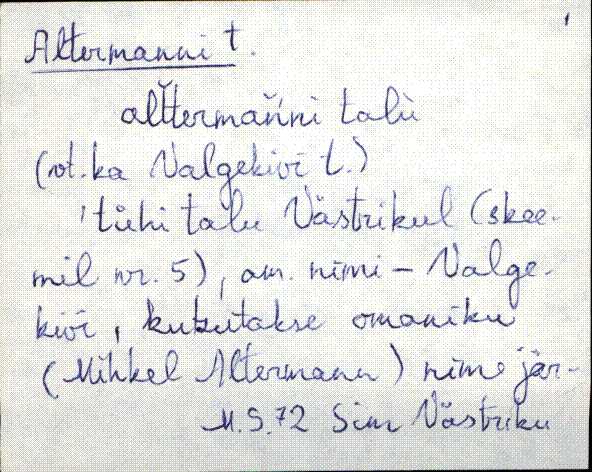 1
Altermanni t.
al̆ttermañ̆ni talù
(vt. ka Valgekivi t.)
'tühi talu Västrikul (skee-
mil nr. 5), am. nimi – Valge-
kivi, kutsutakse omaniku
(Mihkel Altermann) nime jär-
M.S. 72 Sim Västriku